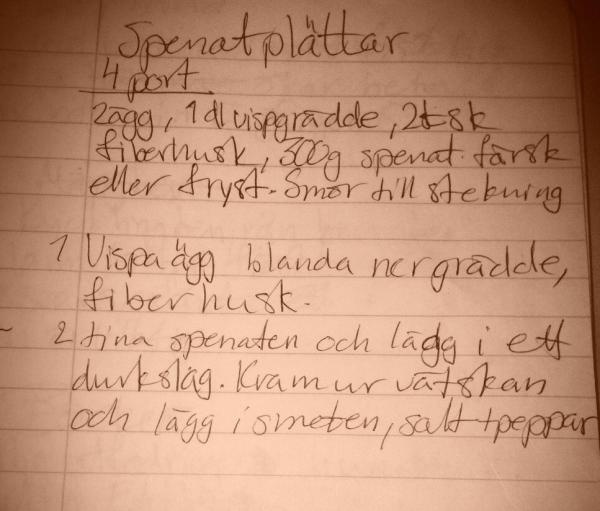 Spenatplättar
4 port
2ägg, 1 dl vispgrädde, 2tsk
fiberhusk, 300g spenat färsk
eller fryst. Smör till stekning
1 Vispa ägg blanda ner grädde,
fiberhusk.
2 tina spenaten och lägg i ett
durkslag. Krama ur vätskan
och lägg i smeten, salt + peppar